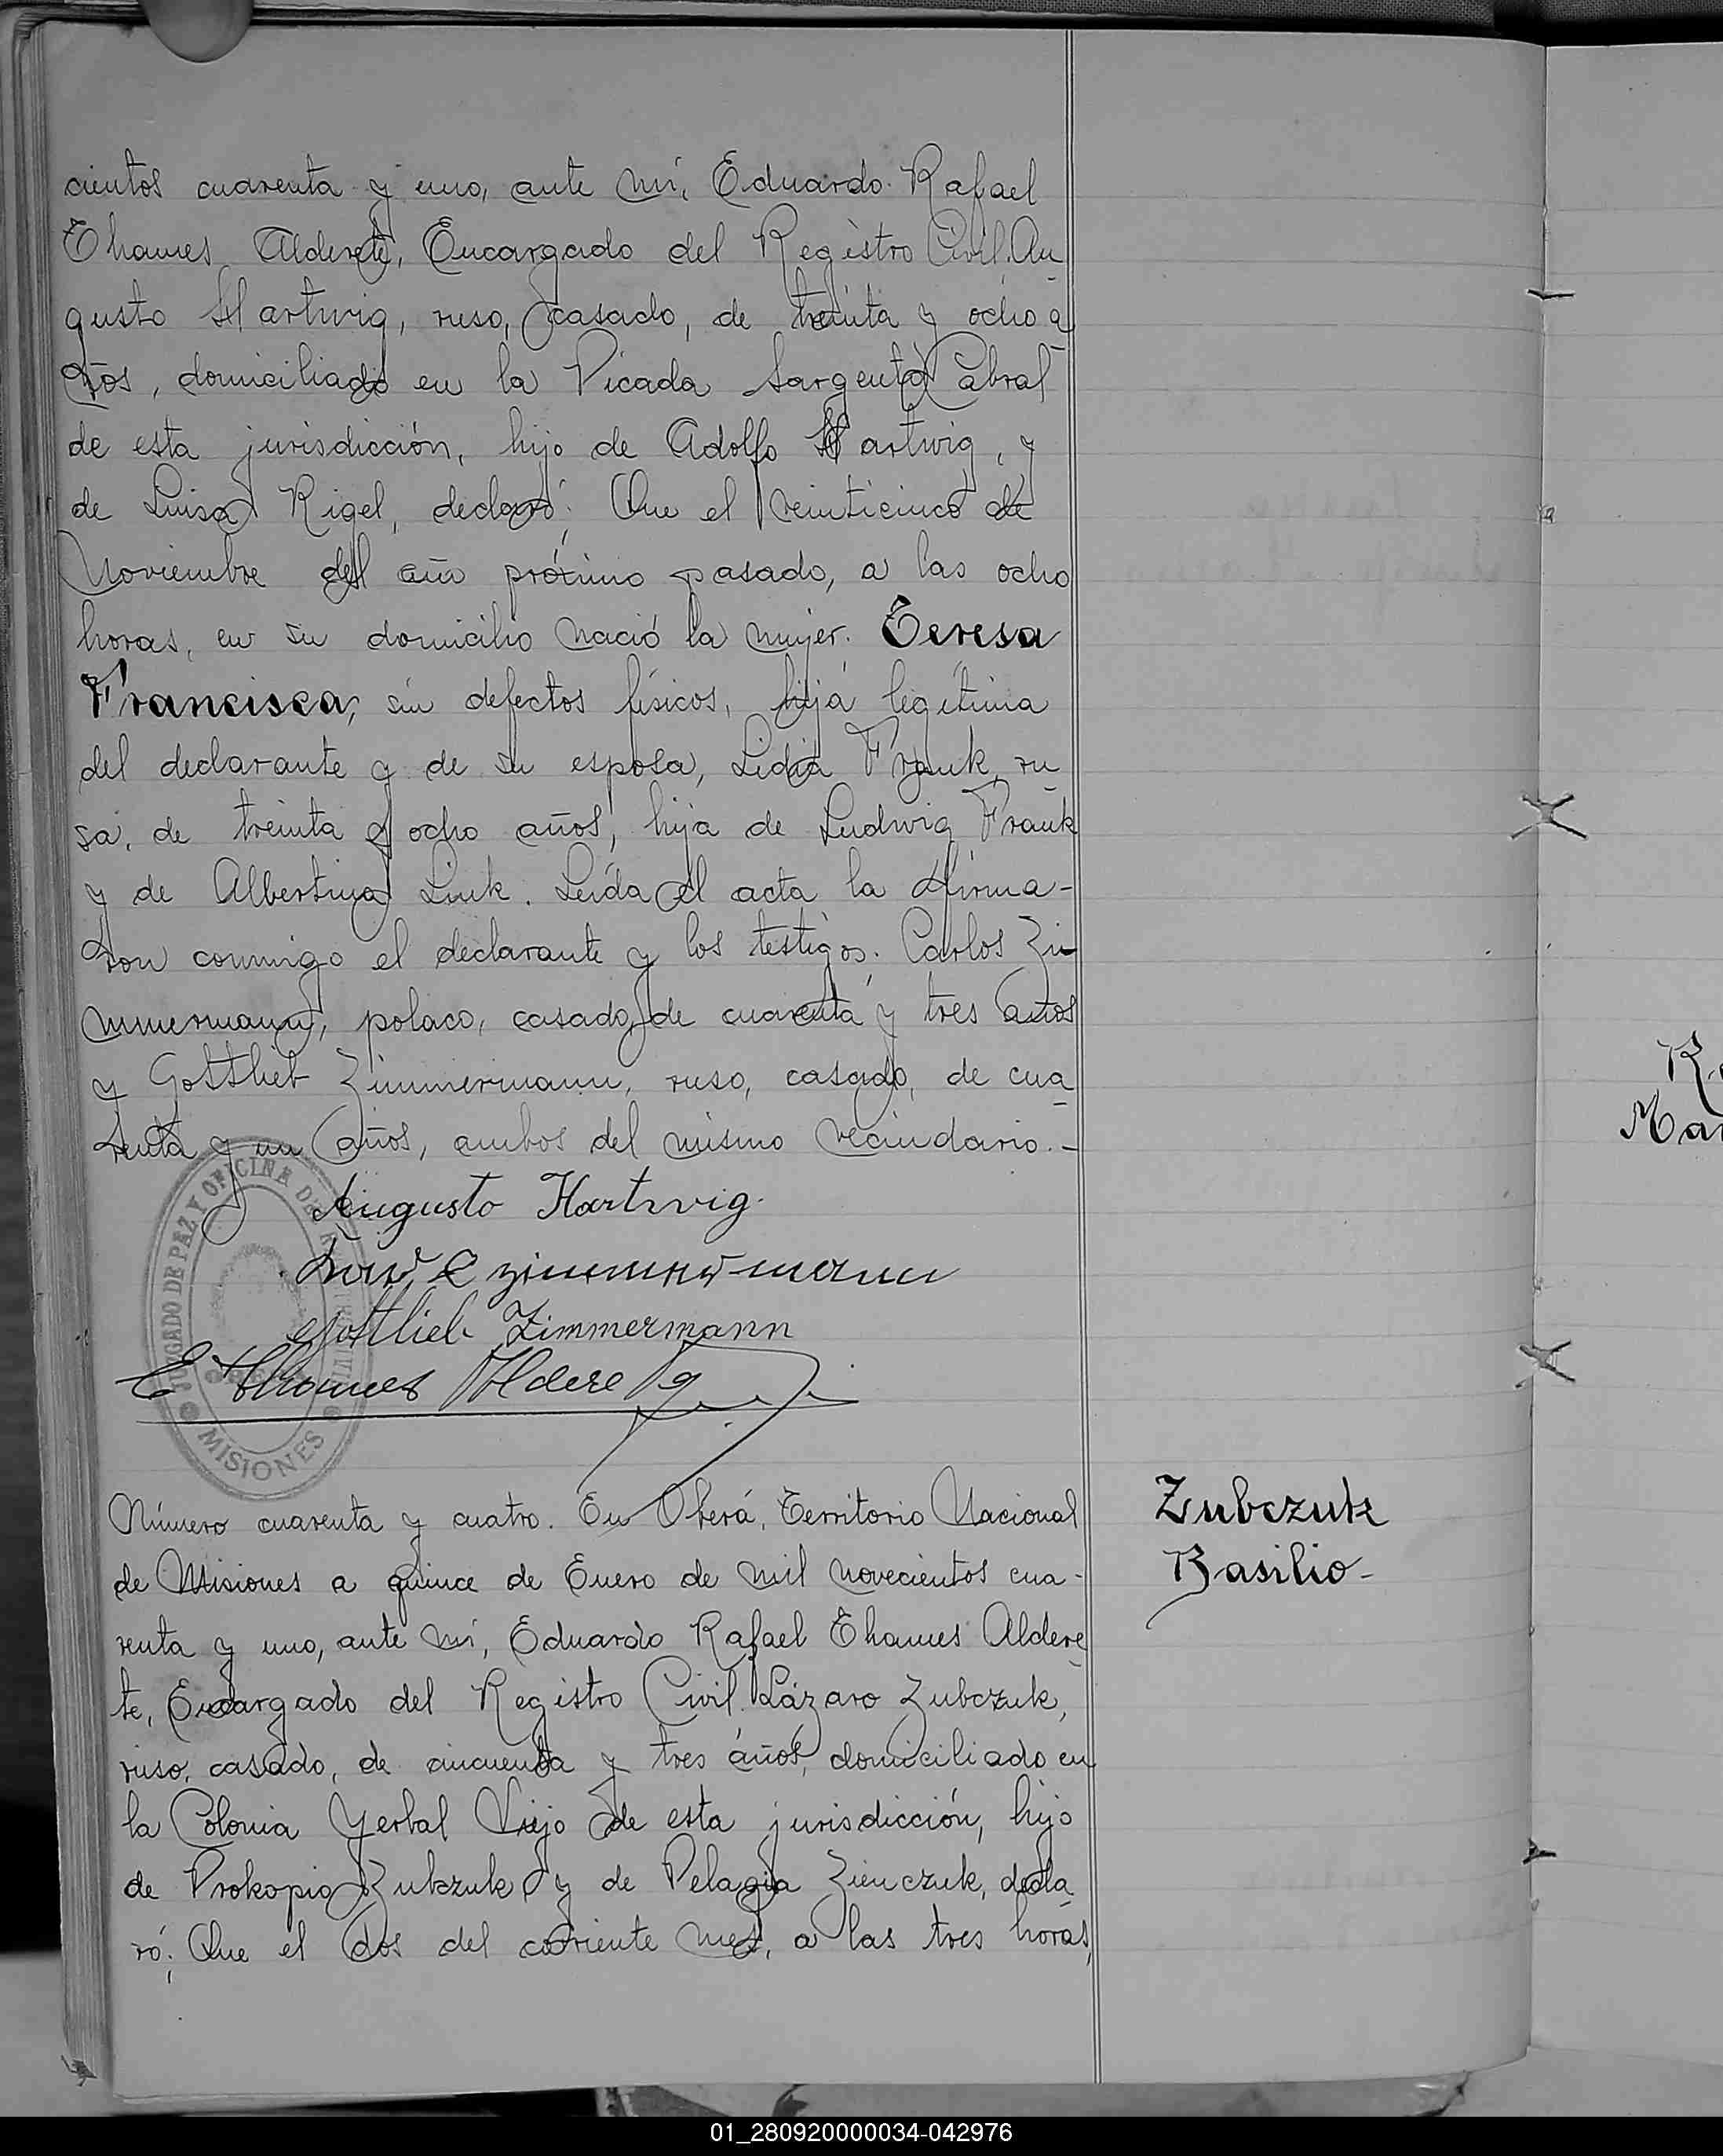 cientos cuarenta y uno, ante mí, Eduardo Rafael
Thames Alderete, Encargado del Registro Civil. Au
gusto Hartwig, ruso, casado, de treinta y ocho a
ños, domiciliado en la Picada Sargento Cabral
de esta jurisdicción, hijo de Adolfo Hartwig, y
de Luisa Rigel, declaró: Que el veinticinco de
Noviembre del año próximo pasado, a las ocho
horas, en su domicilio nació la mujer. Teresa
Francisca, sin defectos físicos, hija legítima
del declarante y de su esposa, Lidia Frank, ru
sa, de treinta y ocho años, hija de Ludwig Frank
y de Albertina Link. Leída el acta la firma-
ron conmigo el declarante y los testigos. Carlos Zi
mmermann, polaco, casado, de cuarenta y tres años
y Gottlieb Zimmermann, ruso, casado, de cua
renta y un años, ambos del mismo vecindario.-
Augusto Hartwig.
Zimmermann
Gottlieb Zimmermann
E Thames Alderete
JUZGADO DE PAZ Y OFICINA DEL
MISIONES
Número cuarenta y cuatro. En Oberá, Territorio Nacional
de Misiones a quince de Enero de mil novecientos cua-
renta y uno, ante mí, Eduardo Rafael Thames Aldere
te, Encargado del Registro Civil. Lázaro Zubczuk,
ruso, casado, de cincuenta y tres años, domiciliado en
la Colonia Yerbal Viejo de esta jurisdicción, hijo
de Prokopio Zubczuk y de Pelagia Zienczuk, decla
ró: Que el dos del corriente mes, a las tres horas,
Zubczuk
Basilio-
01_280920000034-042976